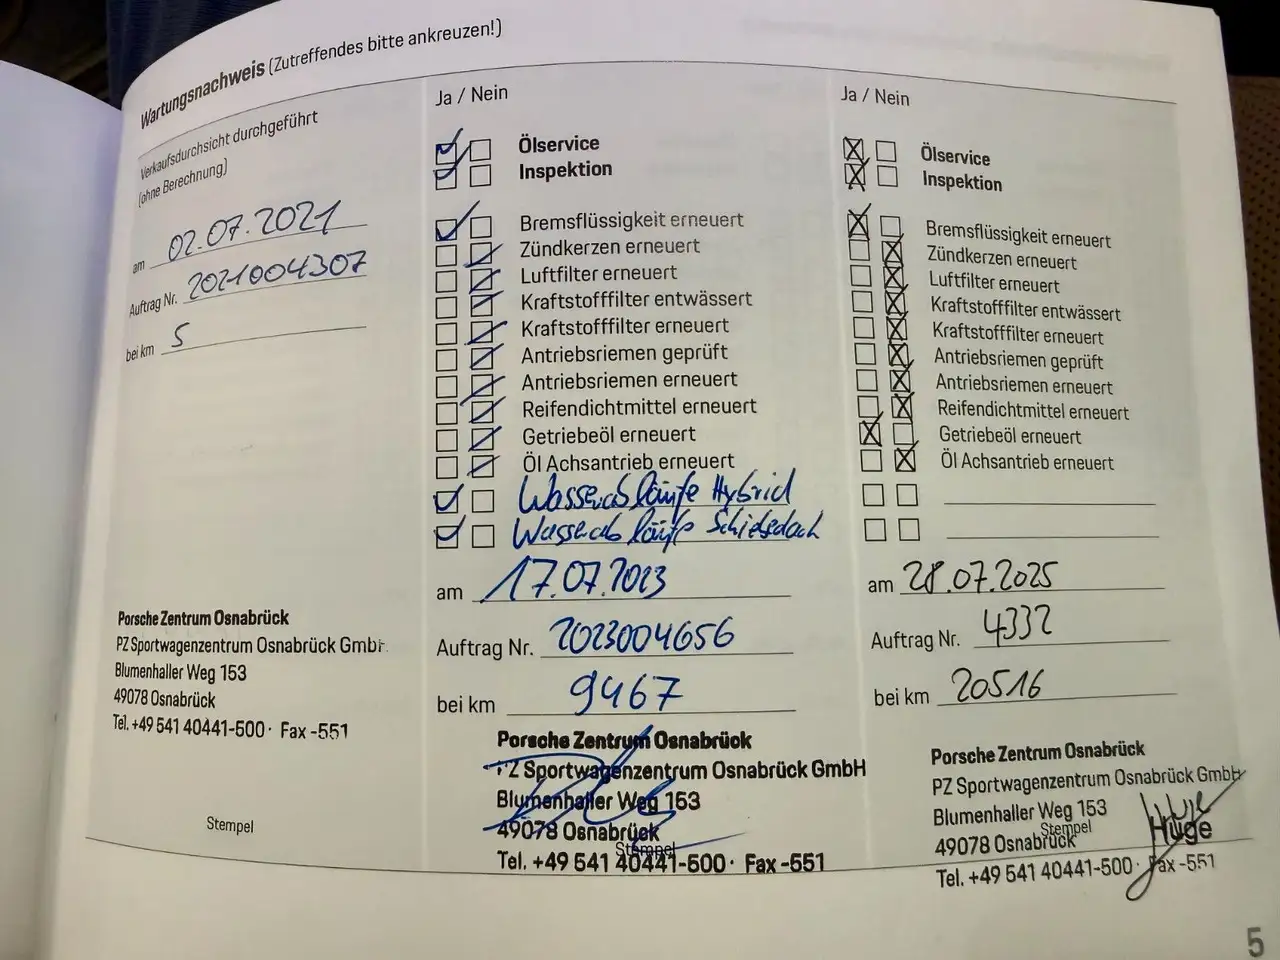 Wartungsnachweis (Zutreffendes bitte ankreuzen!)
Verkaufsdurchsicht durchgeführt
(ohne Berechnung)
am 02.07.2021
Auftrag Nr. 2021004307
bei km 5
Porsche Zentrum Osnabrück
PZ Sportwagenzentrum Osnabrück GmbH
Blumenhaller Weg 153
49078 Osnabrück
Tel. +49 541 40441-500 · Fax -551
Stempel
Ja / Nein
Ölservice
Inspektion
Bremsflüssigkeit erneuert
Zündkerzen erneuert
Luftfilter erneuert
Kraftstofffilter entwässert
Kraftstofffilter erneuert
Antriebsriemen geprüft
Antriebsriemen erneuert
Reifendichtmittel erneuert
Getriebeöl erneuert
Öl Achsantrieb erneuert
Wasserabläufe Hybrid
Wasserabläufe Schiebedach
am 17.07.2023
Auftrag Nr. 2023004656
bei km 9467
Porsche Zentrum Osnabrück
PZ Sportwagenzentrum Osnabrück GmbH
Blumenhaller Weg 153
49078 Osnabrück
Stempel
Tel. +49 541 40441-500 · Fax -551
Ja / Nein
Ölservice
Inspektion
Bremsflüssigkeit erneuert
Zündkerzen erneuert
Luftfilter erneuert
Kraftstofffilter entwässert
Kraftstofffilter erneuert
Antriebsriemen geprüft
Antriebsriemen erneuert
Reifendichtmittel erneuert
Getriebeöl erneuert
Öl Achsantrieb erneuert
am 28.07.2025
Auftrag Nr. 4332
bei km 20516
Porsche Zentrum Osnabrück
PZ Sportwagenzentrum Osnabrück GmbH
Blumenhaller Weg 153
Stempel Hüge
49078 Osnabrück
Tel. +49 541 40441-500 · Fax -551
5